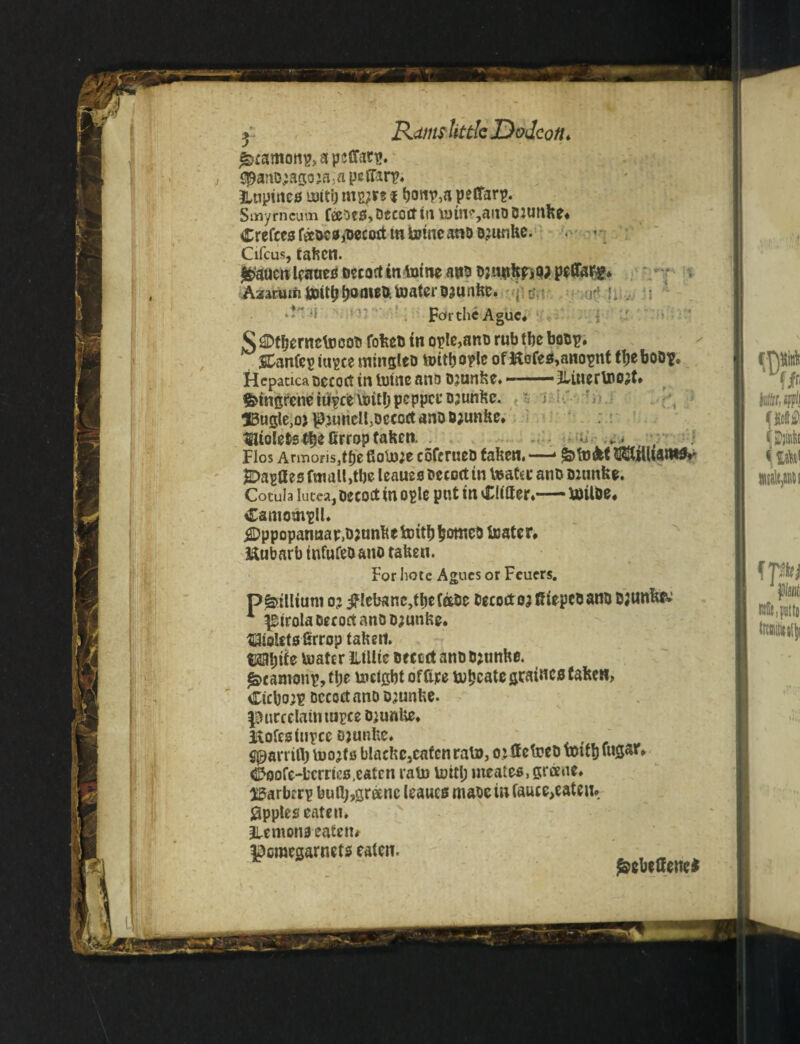 3 Rams little Dodeon.
Scamony, a pessary.
Mandragora, a pessary.
Lupines with myrre & hony, a pessary.
Smyrneum sœdes, decoct in wine, and drunke.
Cresces sædes, decoct in wine and drunke.
Cifcus, taken.
Sauen leaues decoct in wine and drunke, or pessary.
Azarum with homed water drunke.
For the Ague.
SOthernewood soked in oyle, and rub the body.
Tansey iuyce mingled with oyle of Roses, anoynt the body.
Hepatica decoct in wine and drunke. —— Liuerwort.
Singrene iuyce with pepper drunke.
Bugle, or Prunell, decoct and drunke.
Violets the sirrop taken.
Flos Armoris, the flowre coserued taken. — Swéet Williams.
Daysies small, the leaues decoct in water and drunke.
Cotula lutea, decoct in oyle put in Clister. —— wilde.
Camomyll.
Oppopannax, drunke with homed water.
Rubarb infused and taken.
For hote Agues or Feuers.
PSillium or Flebane, the sæde decoct or stieped and drunke.
Pirola decoct and drunke.
Violets sirrop taken.
White water Lillie decoct and drunke.
Scamony, the weight of fixe wheate graines taken,
Cichory decoct and drunke.
Purcelain iuyce drunke.
Roses iuyce drunke.
Marrish worts blacke, eaten raw, or stewed with sugar.
Goose-berries, eaten raw with meates, græne.
Barbery bush, græne leaues made in sauce, eaten.
Apples eaten.
Lemons eaten.
Pomegarnets eaten.
Sebestenes